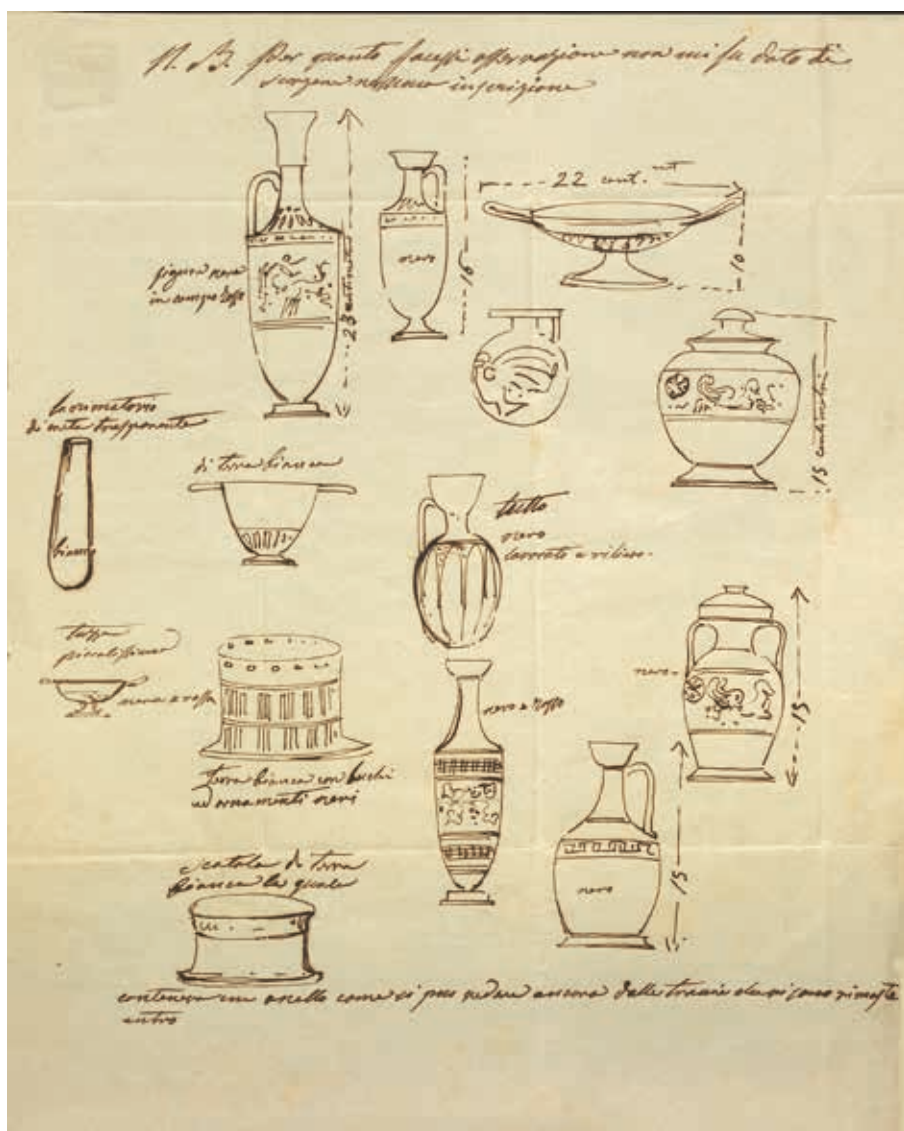 N. B. Per quanto facessi osservazione non mi fu dato di
scorgere nessuna inscrizione
22 cent.
figura nera
in campo rosso
23 centimetri
nero
16
10
15 centimetri
di vetro trasparente
bianco
di terra bianca
tutto
nero
lavorato a rilievo.
tazza
piccolissima
nera e rossa
terra bianca con buchi
ed ornamenti neri
nero e rosso
nero
15
nero
15
scatola di terra
bianca la quale
conteneva un anello come si può vedere ancora dalle traccie che vi sono rimaste
entro